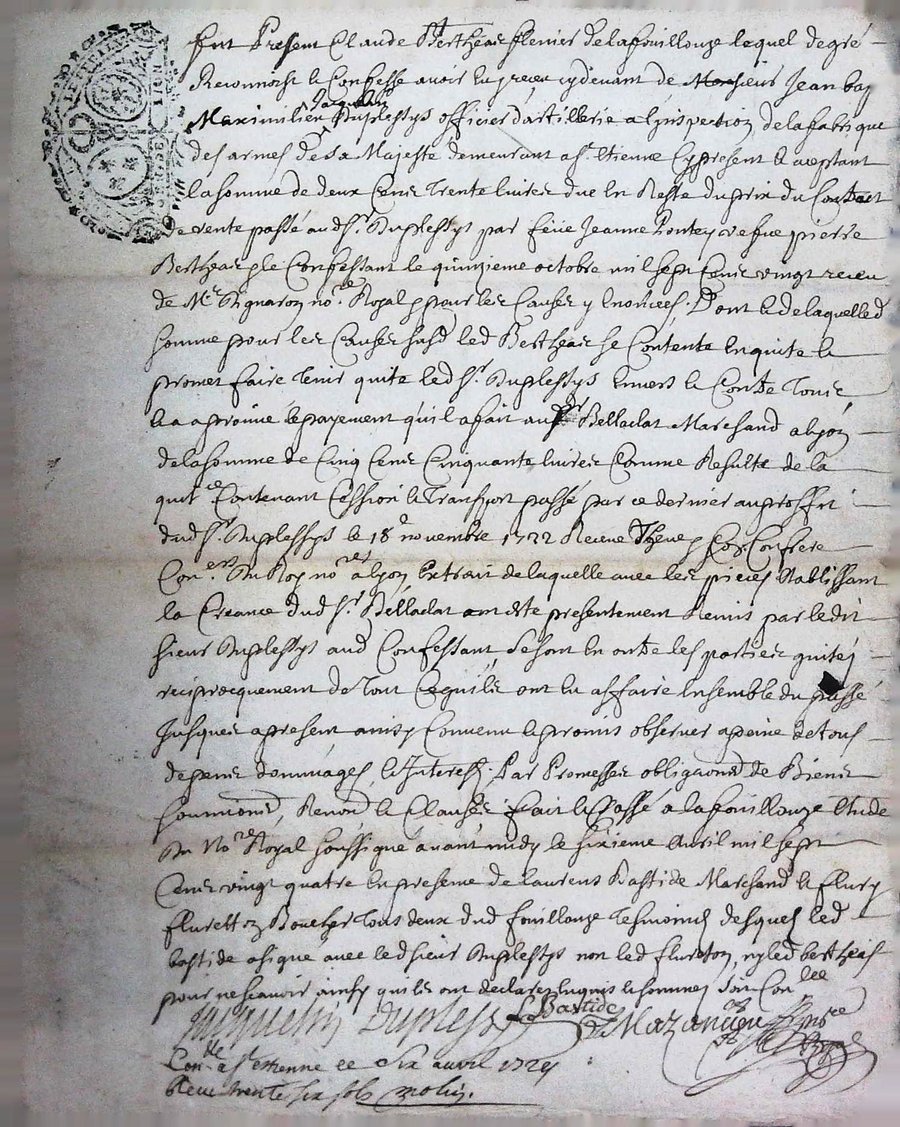 fut Present Claude Bertheas flenier de la fouillouze lequel de gré
Reconnoist et Confesse avoir eu et receu cy devant de Monsieur Jean bap
Jaquelin
Maximilien Duplessys officier d'artillerie a l'inspection de la fabrique
des armes de sa Majesté demeurant a st. Etienne Cy present et aceptant
la somme de deux Cens Trente livres due en Reste du prix du Contract
de vente passé aud. sr. Duplessys par feüe Jeanne vefve pierre
Bertheas et le Confessant le quinzieme octobre mil sept Cens vingt receu
de Me. no.re Royal et pour les Causes y enoncees. Dont et de laquelle d
somme pour les Causes susd led Bertheas se Contente en quite et
promet faire tenir quite led sr. Duplessys envers et Contre Tous
et a aprouvé le payement qu'il a fait au sr Belladat Marchand a lyon
de la somme de Cinq Cens Cinquante livres Comme Resulte de la
quit.ce Contenant Cession et Transport passé par ce dernier au proffit
dud sr. Duplessys le 18e novembre 1722 Receue Theve et Son Confrere
Con.ers Du Roy no.res a lyon Extrait de laquelle avec les pieces Etablissant
la Creance dud sr. Belladat ont ete presentement Remis par ledit
sieur Duplessys aud Confessant, se sont en outre les parties quitéz
reciprocquement de Tout Ce qu'ils ont eu affaire Ensemble du passé
Jusques a present ainsy Convenu et promis observer a peine de tous
depens dommages et Interests, Par Promesses obligaons de Biens
soumions, Renon et Clauses fait et Passé a la fouillouze Etude
Du No.re Royal soussigné avant midy le sixieme Avril mil sept
Cens vingt quatre en presence de laurens Bastide Marchand et fleury
fluretton Boucher Tous deux dud fouillouze Tesmoins desquels led
bastide a signé avec led sieur Duplessys non led flureton, ny led bertheas
pour ne scavoir ainsy qu'ils ont declaré Enquis et sommés Soit Con.lee
Jacquelin Duplessys L Bastide De Mazancieu No.re
Con.lle a st etienne ce Six avril 1724
Receu trente six sols molin.